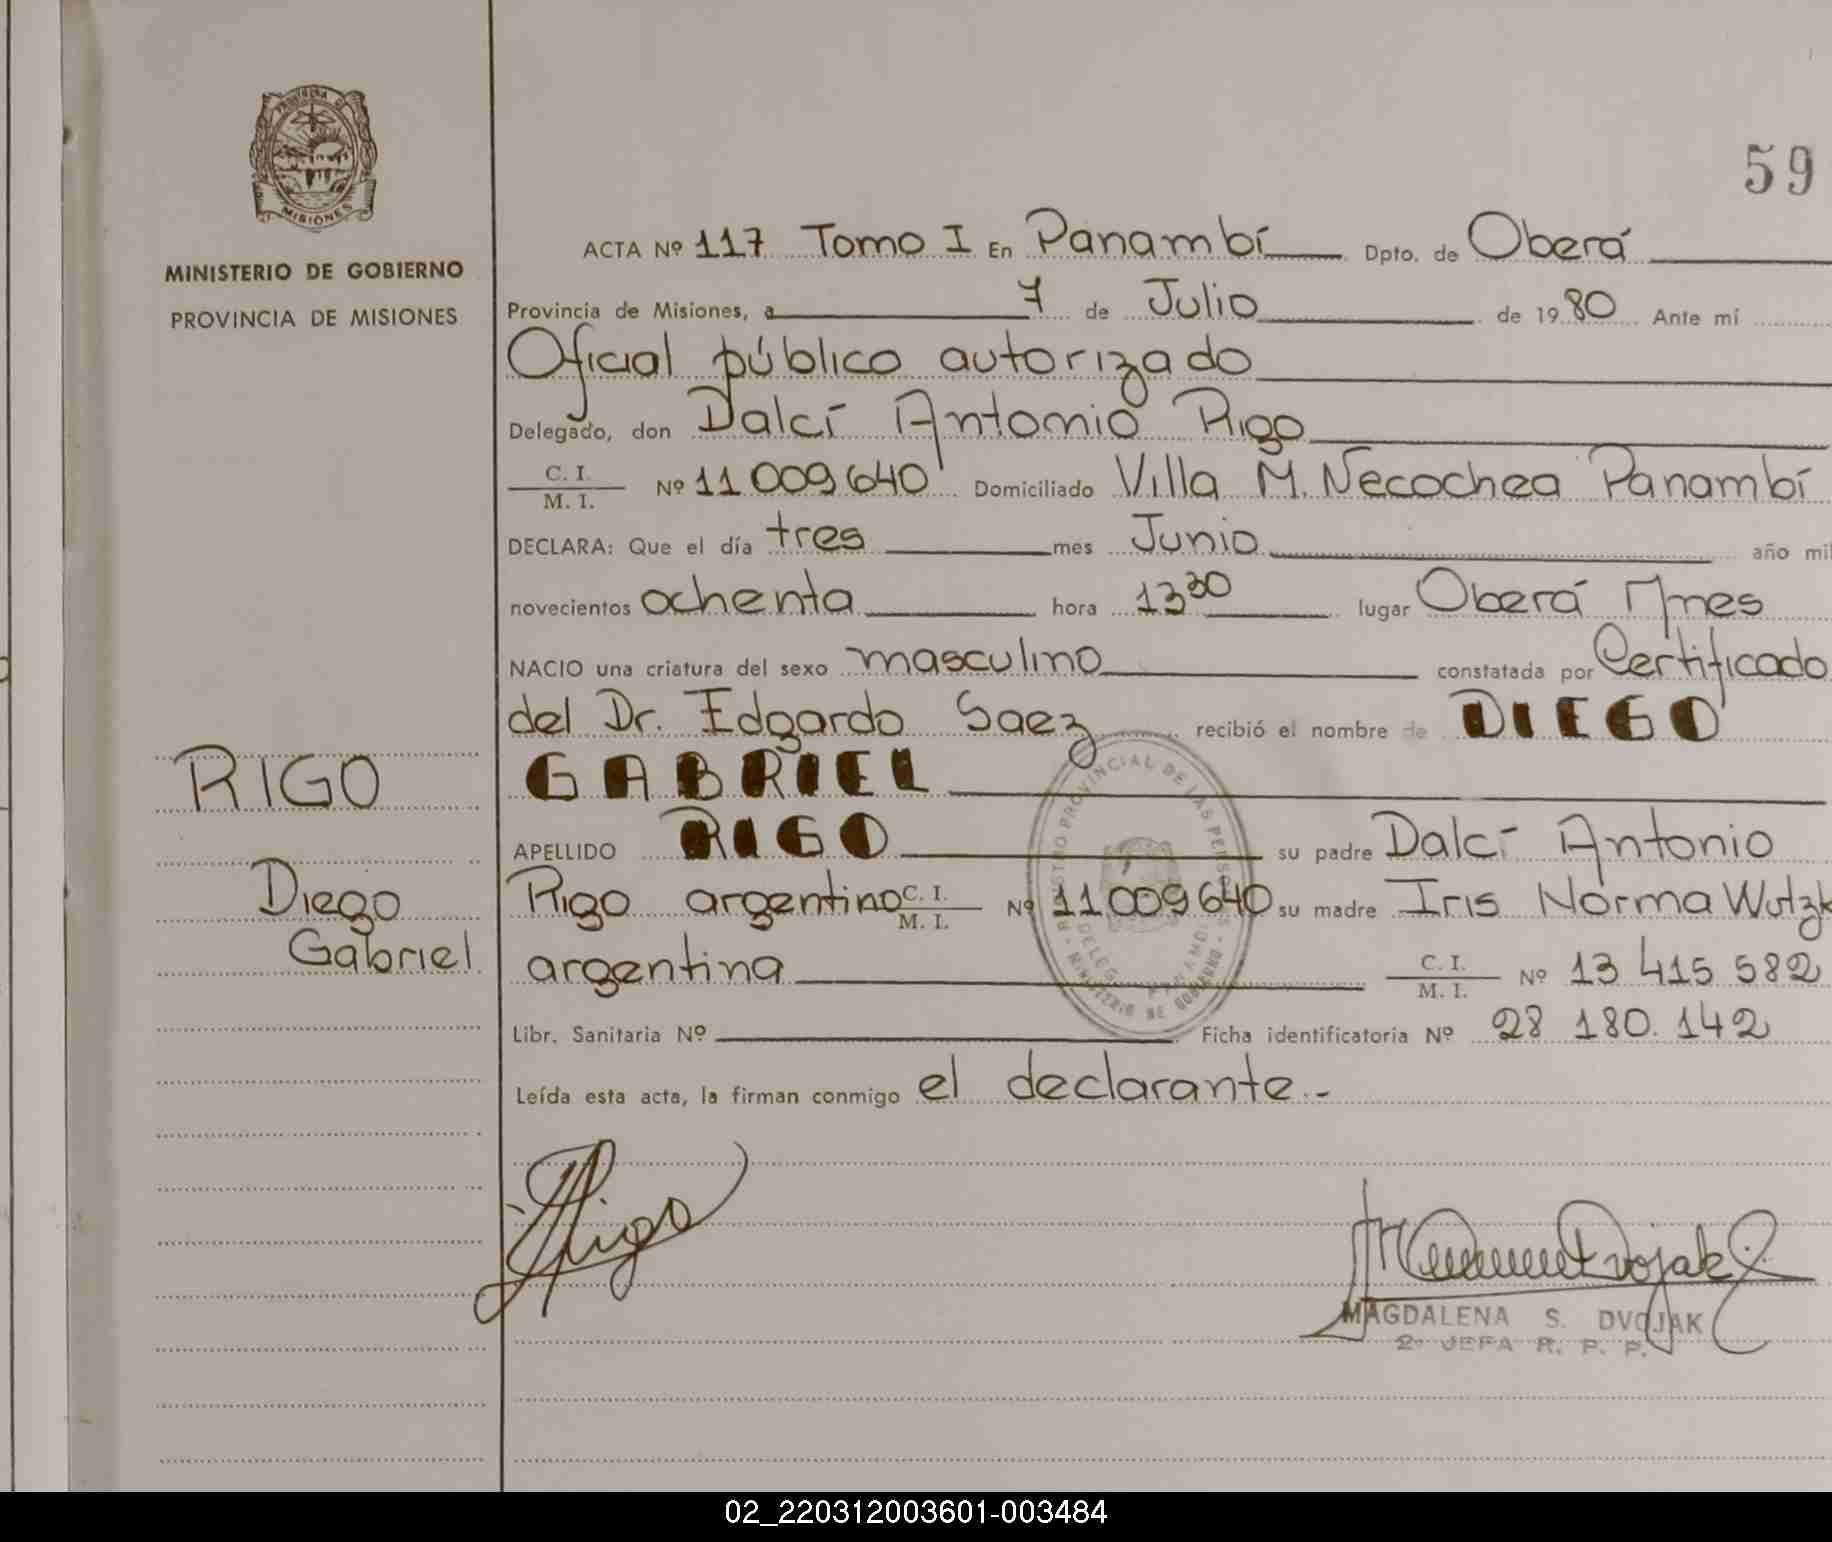 PROVINCIA DE
MISIONES
MINISTERIO DE GOBIERNO
PROVINCIA DE MISIONES
RIGO
Diego
Gabriel
59
ACTA Nº 117 Tomo I En Panambí Dpto. de Oberá
Provincia de Misiones, a 7 de Julio de 19 80 Ante mí
Oficial público autorizado
Delegado, don Dalcí Antonio Rigo
C. I.
M. I. Nº 11 009 640 Domiciliado Villa M. Necochea Panambí
DECLARA: Que el día tres mes Junio año mil
novecientos ochenta hora 13 30 lugar Oberá Mnes
NACIO una criatura del sexo masculino constatada por Certificado
del Dr. Edgardo Saez recibió el nombre de DIEGO
GABRIEL
APELLIDO RIGO su padre Dalcí Antonio
Rigo argentino C. I. M. I. Nº 11 009 640 su madre Iris Norma Wutzk
argentina C. I. M. I. Nº 13 415 582
Libr. Sanitaria Nº Ficha identificatoria Nº 28 180.142
Leída esta acta, la firman conmigo el declarante.-
REGISTRO PROVINCIAL DE LAS PERSONAS
MINISTERIO DE GOBIERNO
Rigo
Dvojak
MAGDALENA S. DVOJAK
2º JEFA R. P. P.
02_220312003601-003484